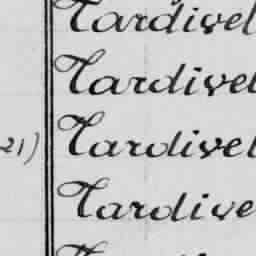 Tardivel
Tardivel
21) Tardivel
Tardive